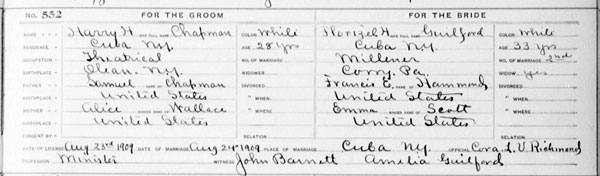 No. 552 FOR THE GROOM FOR THE BRIDE
NAME Harry H. GIVE FULL NAME Chapman COLOR White Florizel H. GIVE FULL NAME Guilford COLOR White
RESIDENCE Cuba Ny. AGE 28 yrs Cuba Ny. AGE 33 yrs
OCCUPATION Theatrical NO. OF MARRIAGE Milliner NO. OF MARRIAGE 2nd
BIRTHPLACE Olean. Ny. WIDOWER Corry, Pa. WIDOW yes
FATHER Samuel NAME OF Chapman DIVORCED Francis E. NAME OF Hammond DIVORCED
BIRTHPLACE United States " WHEN United States " WHEN
MOTHER Alice MAIDEN NAME OF Wallace " WHERE Emma MAIDEN NAME OF Scott " WHERE
BIRTHPLACE United States United States
CONSENT BY RELATION RELATION
DATE OF LICENSE Aug 23rd 1909 DATE OF MARRIAGE Aug 24th 1909 PLACE OF MARRIAGE Cuba Ny. OFFICIAL Cora L. V. Richmond
PROFESSION Minister WITNESS John Barnett Amelia Guilford